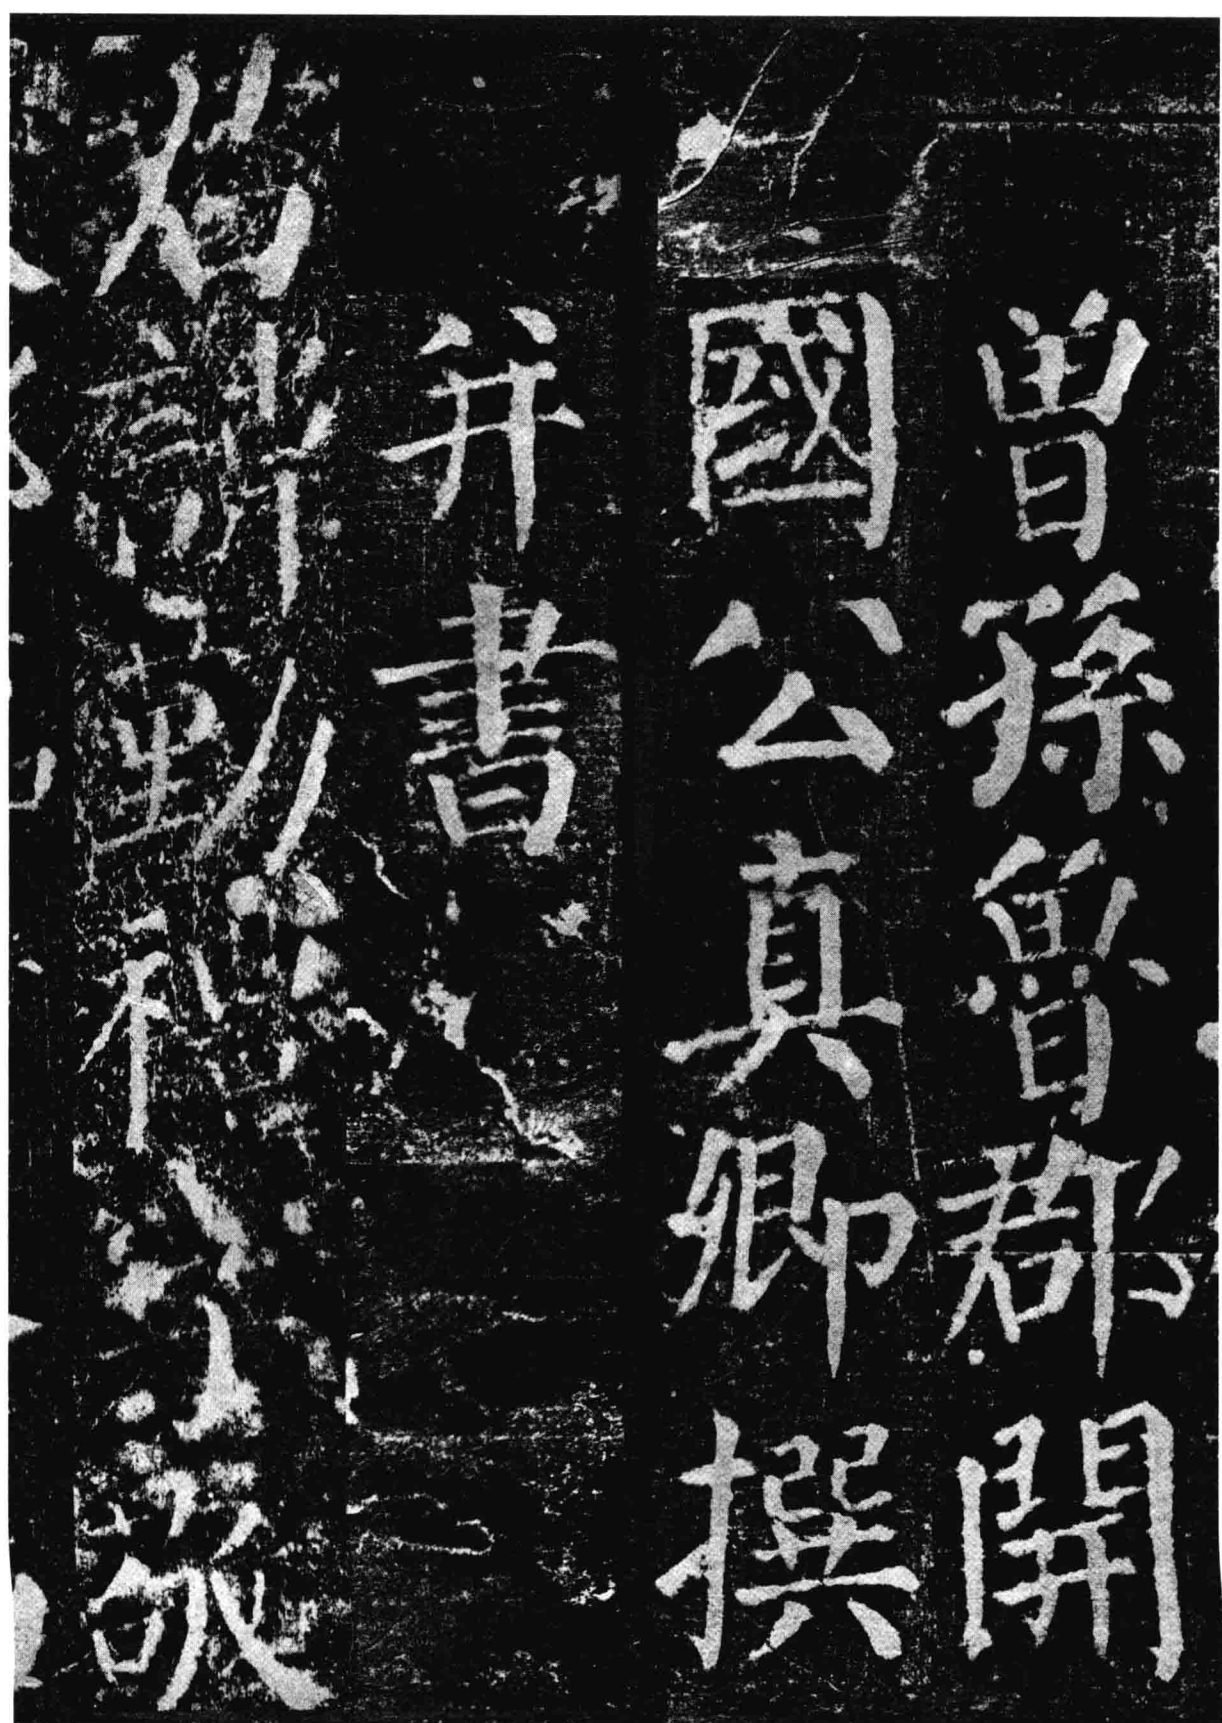 曾孫魯郡開
國公真卿撰
并書
君諱勤禮字敬